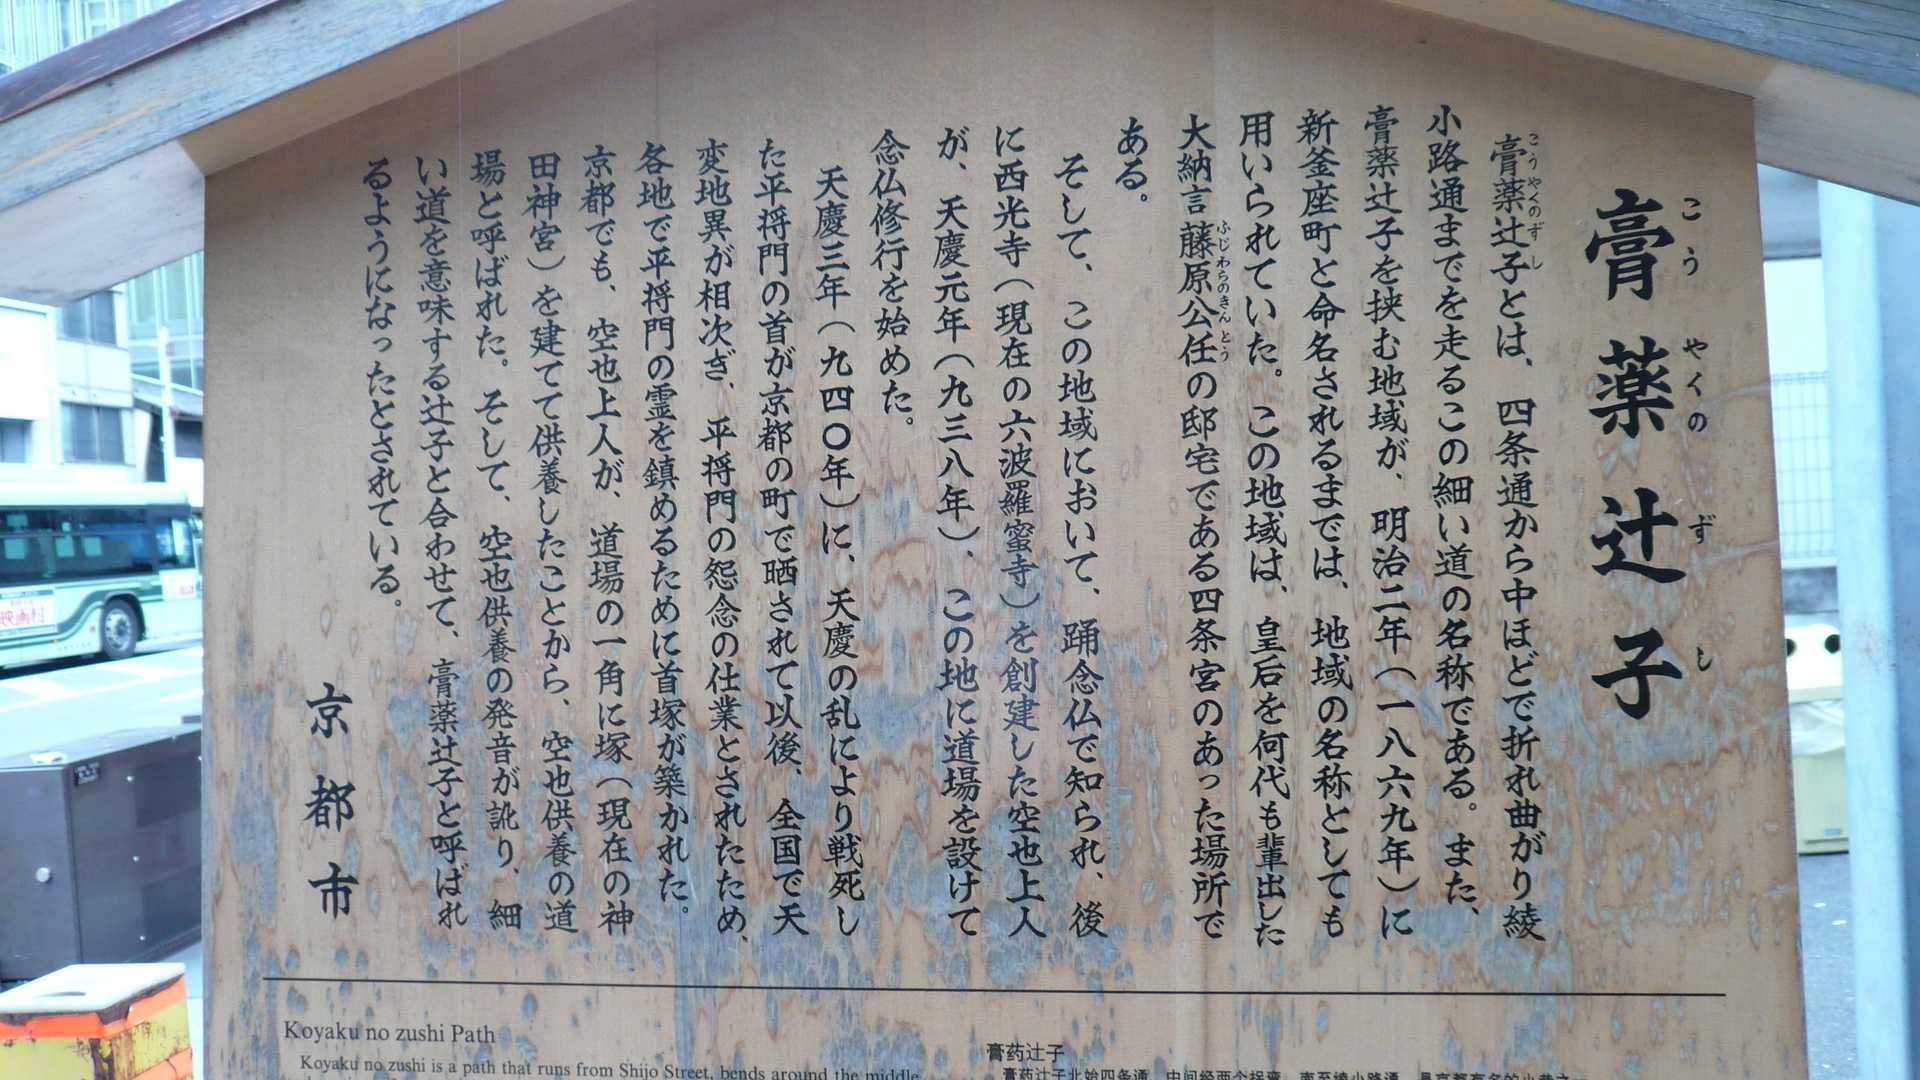 膏薬辻子
こう やくの ず し
膏薬辻子とは、四条通から中ほどで折れ曲がり綾
こう やくの ずし
小路通までを走るこの細い道の名称である。また、
膏薬辻子を挟む地域が、明治二年(一八六九年)に
新釜座町と命名されるまでは、地域の名称としても
用いられていた。この地域は、皇后を何代も輩出した
大納言藤原公任の邸宅である四条宮のあった場所で
ふじわらのきんとう
ある。
そして、この地域において、踊念仏で知られ、後
に西光寺(現在の六波羅蜜寺)を創建した空也上人
が、天慶元年(九三八年)、この地に道場を設けて
念仏修行を始めた。
天慶三年(九四〇年)に、天慶の乱により戦死し
た平将門の首が京都の町で晒されて以後、全国で天
変地異が相次ぎ、平将門の怨念の仕業とされたため、
各地で平将門の霊を鎮めるために首塚が築かれた。
京都でも、空也上人が、道場の一角に塚(現在の神
田神宮)を建てて供養したことから、空也供養の道
場と呼ばれた。そして、空也供養の発音が訛り、細
い道を意味する辻子と合わせて、膏薬辻子と呼ばれ
るようになったとされている。
京都市
Koyaku no zushi Path
Koyaku no zushi is a path that runs from Shijo Street, bends around the middle
膏药辻子
膏药辻子北始四条通，中间经两个拐弯，南至绫小路通
映画村